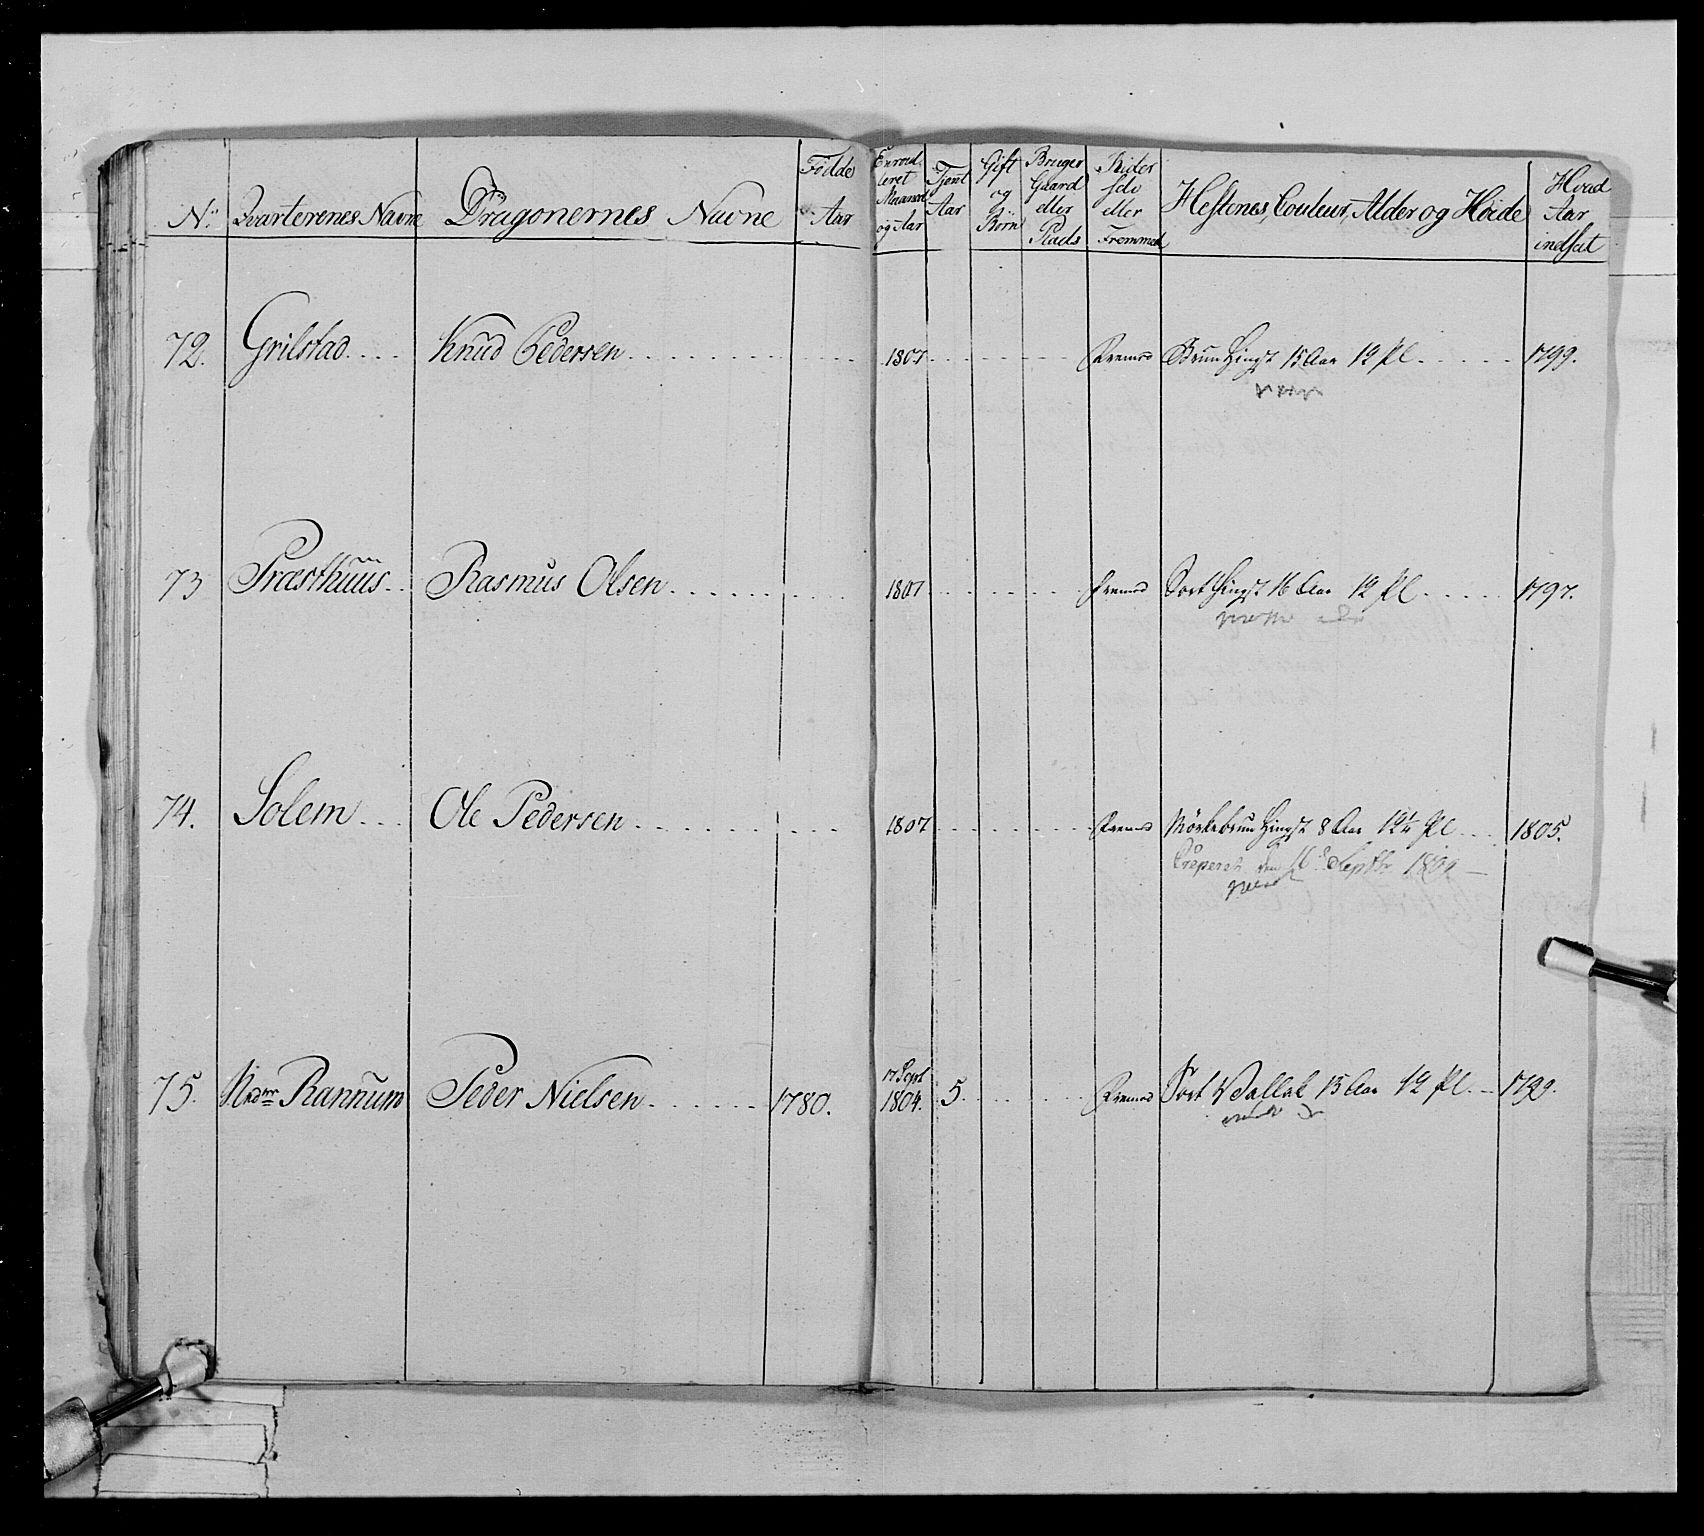 No. Qvarterenes Navne Dragonernes Navne Födde Aar Enroulleret Maaned og Aar Tjent Aar Gift og Börn Bruger Gaard eller Plads Rider selv eller Fremmed Hestenes, Couleur, Alder og Höide Hvad Aar indsat
72. Grilstad Knud Pedersen 1807 Fremed Brun Hingst 15 Aar 12 Pl 1799.
73 Præsthuus Rasmus Olsen 1807 Fremed Sort Hingst 16 Aar 12 Pl 1797.
74. Solem Ole Pedersen 1807 Fremed Mörkebrun Hingst 8 Aar 12¼ Pl 1805.
Creperet den 16 Septbr 1809
75. Nedre Rannum Peder Nielsen 1780. 17 Sept 1804. 5. Fremed Sort Vallak 15 Aar 12 Pl 1799.